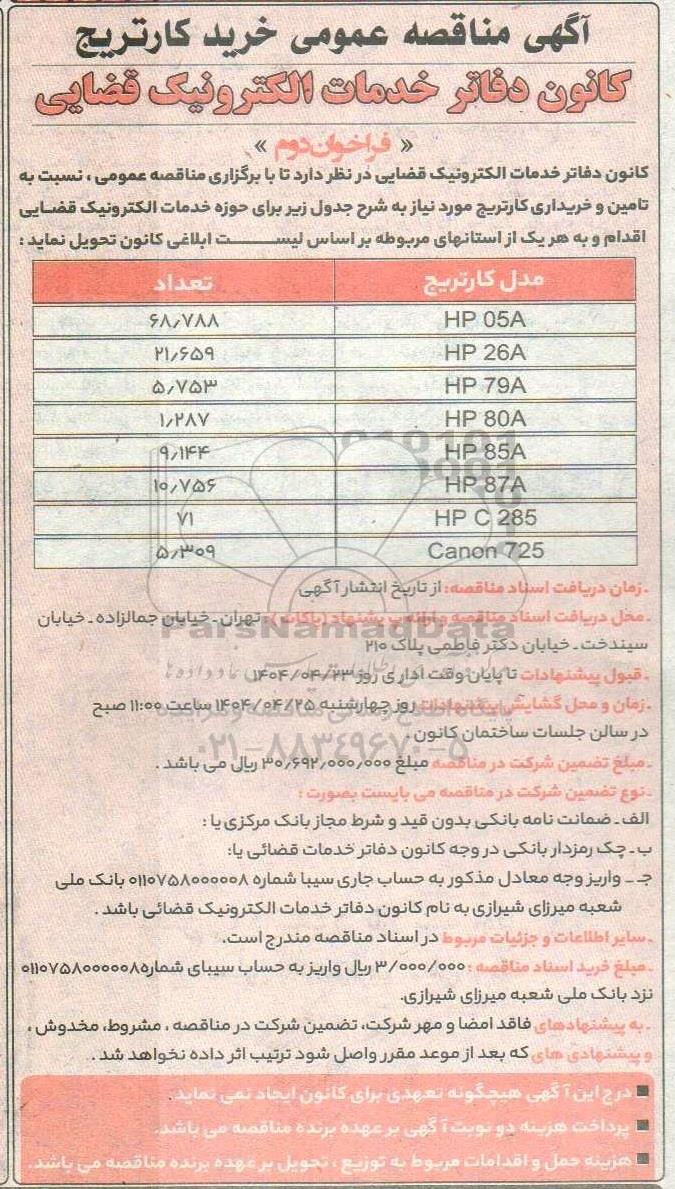 آگهی مناقصه عمومی خرید کارتریج
کانون دفاتر خدمات الکترونیک قضایی
« فراخوان دوم »
کانون دفاتر خدمات الکترونیک قضایی در نظر دارد تا با برگزاری مناقصه عمومی ، نسبت به
تامین و خریداری کارتریج مورد نیاز به شرح جدول زیر برای حوزه خدمات الکترونیک قضـایی
اقدام و به هر یک از استانهای مربوطه بر اساس لیست ابلاغی کانون تحویل نماید :
مدل کارتریج تعداد
HP 05A ۶۸٫۷۸۸
HP 26A ۲۱٫۶۵۹
HP 79A ۵٫۷۵۳
HP 80A ۱٫۲۸۷
HP 85A ۹٫۱۴۴
HP 87A ۱۰٫۷۵۶
HP C 285 ۷۱
Canon 725 ۵٫۳۰۹
ـ زمان دریافت اسناد مناقصه: از تاریخ انتشار آگهی
ـ محل دریافت اسناد مناقصه و ارائه پیشنهاد (پاکات) : تهران ـ خیابان جمالزاده ـ خیابان
سیندخت ـ خیابان دکتر فاطمی پلاک ۲۱۰
ParsNamadData
ـ قبول پیشنهادات تا پایان وقت اداری روز ۱۴۰۴/۰۴/۲۳
ـ زمان و محل گشایش پیشنهادات روز چهارشنبه ۱۴۰۴/۰۴/۲۵ ساعت ۱۱:۰۰ صبح
پایگاه اطلاع رسانی مناقصه و مزایده
در سالن جلسات ساختمان کانون .
۰۲۱-۸۸۳۴۹۶۷۰-۵
ـ مبلغ تضمین شرکت در مناقصه مبلغ ۳۰٫۶۹۲٫۰۰۰٫۰۰۰ ریال می باشد .
ـ نوع تضمین شرکت در مناقصه می بایست بصورت :
الف ـ ضمانت نامه بانکی بدون قید و شرط مجاز بانک مرکزی یا :
ب ـ چک رمزدار بانکی در وجه کانون دفاتر خدمات قضائی یا:
جـ ـ واریز وجه معادل مذکور به حساب جاری سیبا شماره ۰۱۱۰۷۵۸۰۰۰۰۰۸ بانک ملی
شعبه میرزای شیرازی به نام کانون دفاتر خدمات الکترونیک قضائی باشد .
ـ سایر اطلاعات و جزئیات مربوط در اسناد مناقصه مندرج است.
ـ مبلغ خرید اسناد مناقصه : ۳/۰۰۰/۰۰۰ ریال واریز به حساب سیبای شماره۰۱۱۰۷۵۸۰۰۰۰۰۸
نزد بانک ملی شعبه میرزای شیرازی.
ـ به پیشنهادهای فاقد امضا و مهر شرکت، تضمین شرکت در مناقصه ، مشروط، مخدوش ،
و پیشنهادی های که بعد از موعد مقرر واصل شود ترتیب اثر داده نخواهد شد .
■ درج این آگهی هیچگونه تعهدی برای کانون ایجاد نمی نماید.
■ پرداخت هزینه دو نوبت آگهی بر عهده برنده مناقصه می باشد.
■ هزینه حمل و اقدامات مربوط به توزیع ، تحویل بر عهده برنده مناقصه می باشد.